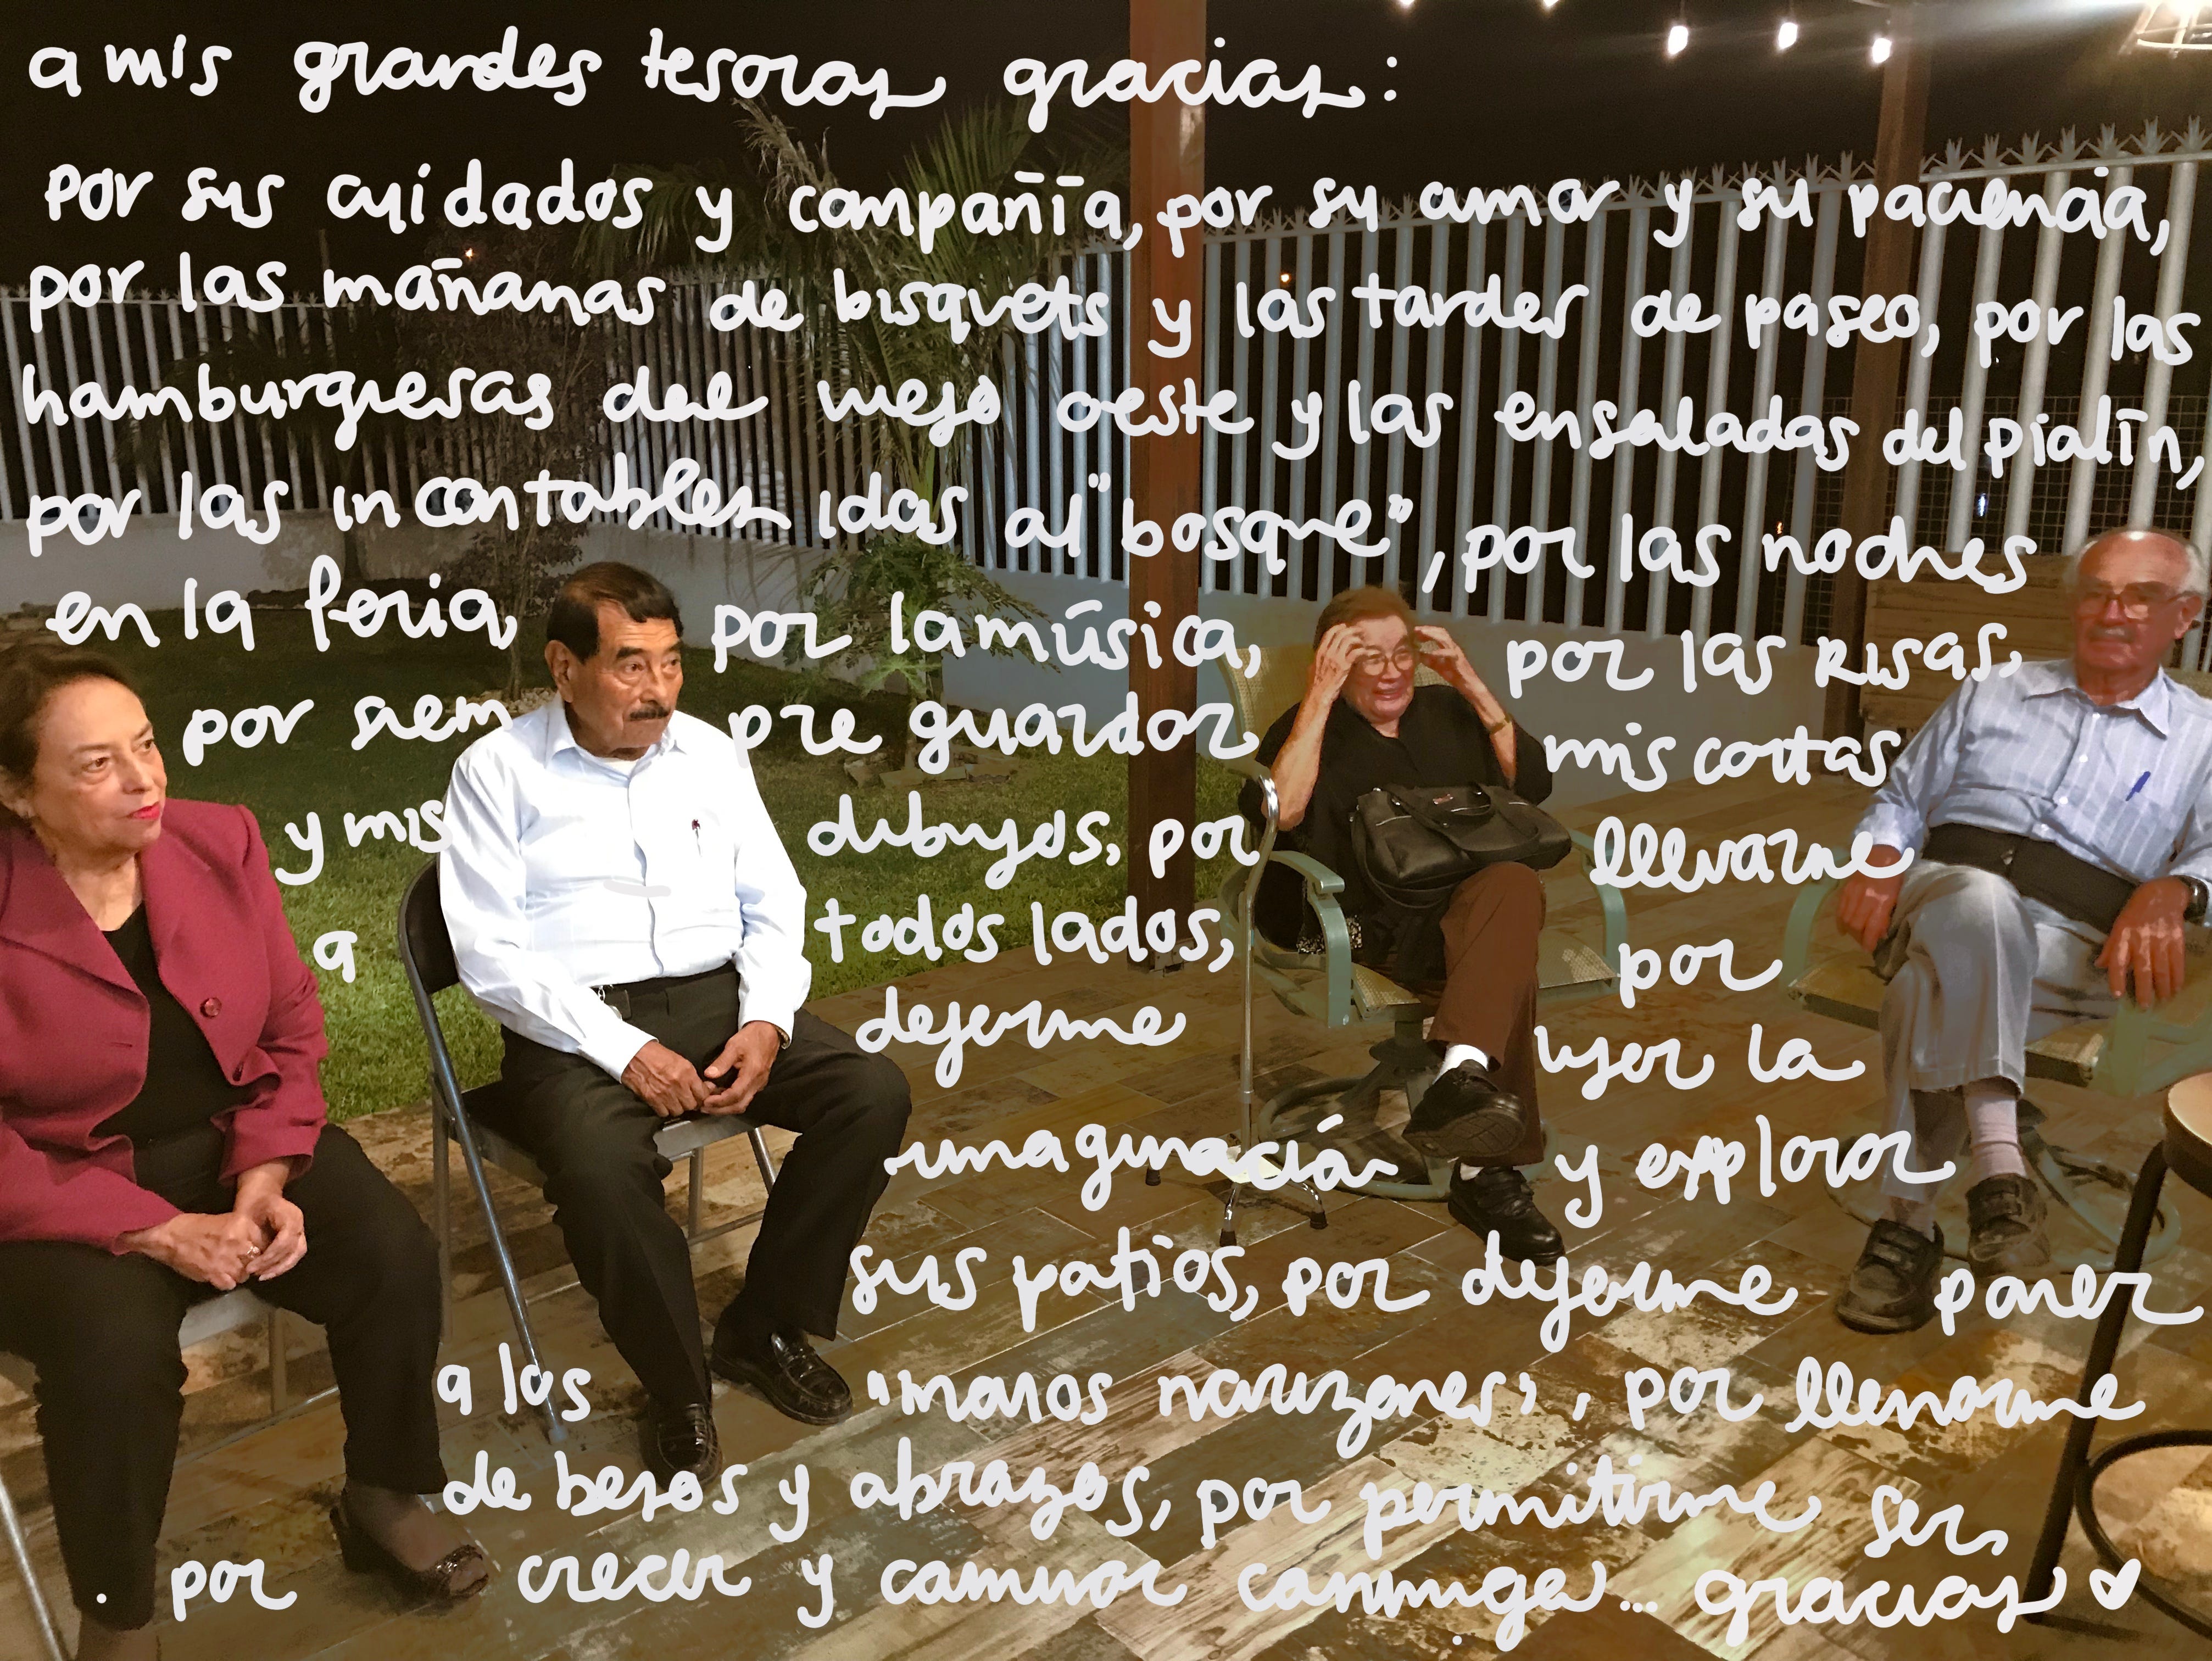 a mis grandes tesoros gracias:
por sus cuidados y compañía, por su amor y su paciencia,
por las mañanas de bisquets y las tardes de paseo, por las
hamburguesas del viejo oeste y las ensaladas del pialín,
por las incontables idas al "bosque", por las noches
en la feria, por la música, por las risas,
por siempre guardar mis cartas
y mis dibujos, por llevarme
a todos lados, por
dejarme usar la
imaginación y explorar
sus patios, por dejarme poner
a los "monos narizones", por llenarme
de besos y abrazos, por permitirme ser,
por crecer y caminar conmigo... gracias ♡